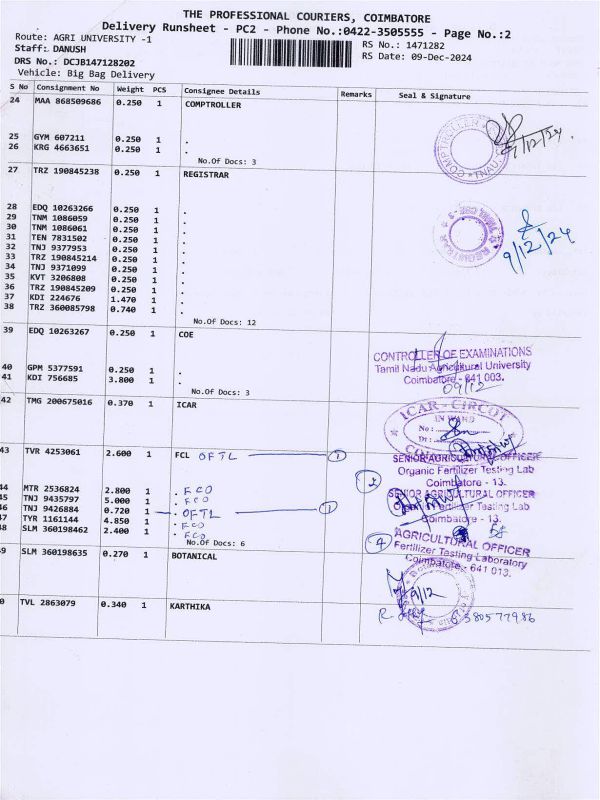 THE PROFESSIONAL COURIERS, COIMBATORE
Delivery Runsheet - PC2 - Phone No.:0422-3505555 - Page No.:2
Route: AGRI UNIVERSITY -1
Staff: DANUSH
RS No.: 1471282
DRS No.: DCJB147128202
RS Date: 09-Dec-2024
Vehicle: Big Bag Delivery
S No Consignment No Weight PCS Consignee Details Remarks Seal & Signature
24 MAA 868509686 0.250 1 COMPTROLLER
25 GYM 607211 0.250 1 .
26 KRG 4663651 0.250 1 .
No.Of Docs: 3
COMPTROLLER
9/12/24.
27 TRZ 190845238 0.250 1 REGISTRAR
28 EDQ 10263266 0.250 1 .
29 TNM 1086059 0.250 1 .
30 TNM 1086061 0.250 1 .
31 TEN 7831502 0.250 1 .
32 TNJ 9377953 0.250 1 .
33 TRZ 190845214 0.250 1 .
34 TNJ 9371099 0.250 1 .
35 KVT 3206808 0.250 1 .
36 TRZ 190845209 0.250 1 .
37 KDI 224676 1.470 1 .
38 TRZ 360085798 0.740 1 .
No.Of Docs: 12
REGISTRAR
9/12/24
39 EDQ 10263267 0.250 1 COE
40 GPM 5377591 0.250 1 .
41 KDI 756685 3.800 1 .
No.Of Docs: 3
CONTROLLER OF EXAMINATIONS
Tamil Nadu Agricultural University
Coimbatore - 641 003.
09/12
42 TMG 200675016 0.370 1 ICAR
ICAR - CIRCOT
INWARD
No :
Dt :
43 TVR 4253061 2.600 1 FCL OFTL 1
44 MTR 2536824 2.800 1 . FCO
45 TNJ 9435797 5.000 1 . FCO
46 TNJ 9426884 0.720 1 . OFTL 1
47 TYR 1161144 4.850 1 . FCO
48 SLM 360198462 2.400 1 . FCO
No.Of Docs: 6
SENIOR AGRICULTURAL OFFICER
Organic Fertilizer Testing Lab
Coimbatore - 13.
2
SENIOR AGRICULTURAL OFFICER
Organic Fertilizer Testing Lab
Coimbatore - 13.
4
AGRICULTURAL OFFICER
Fertilizer Testing Laboratory
Coimbatore - 641 013.
49 SLM 360198635 0.270 1 BOTANICAL
9/12
50 TVL 2863079 0.340 1 KARTHIKA
6380577986